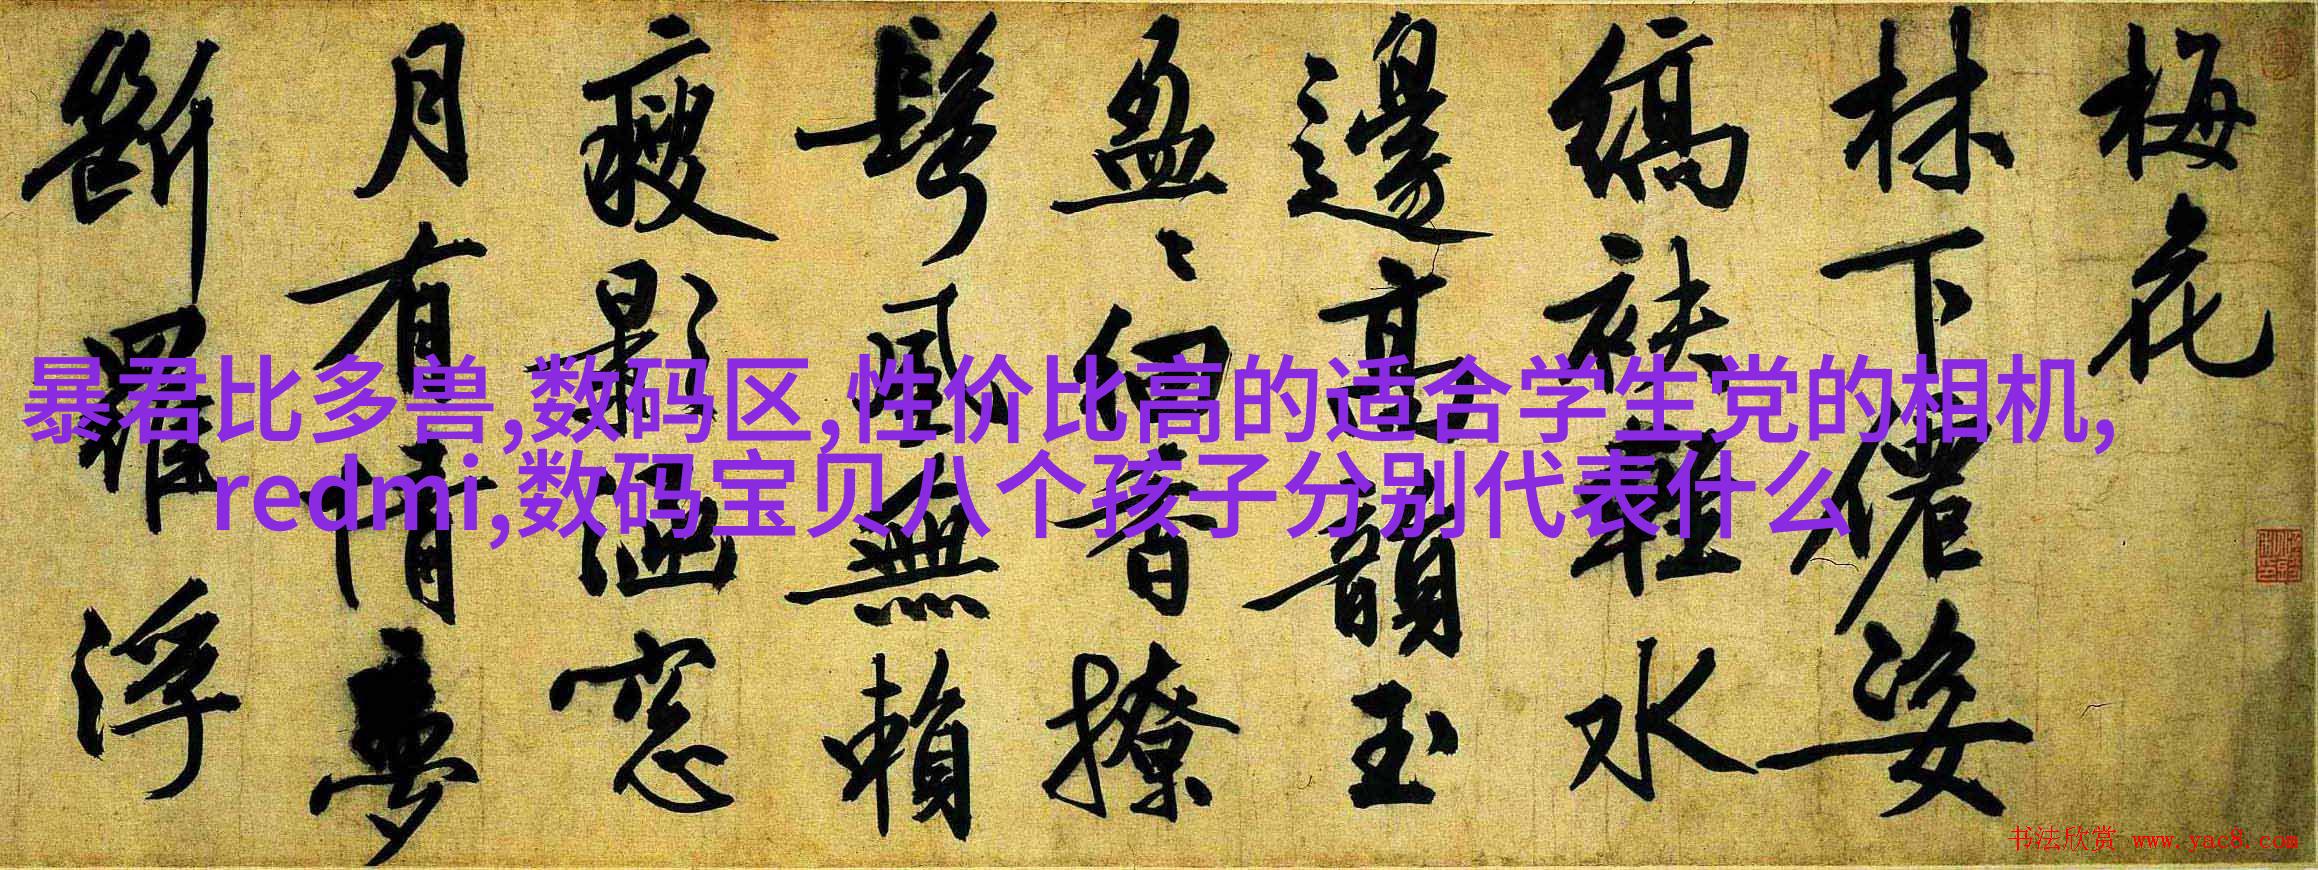 梅花
林下僊姿
縞袂輕水
邊高韻玉
盈〻細香撩
鬢風無賴
瘦影涵窓
月有情夢
斷羅浮
暴君比多兽,数码区,性价比高的适合学生党的相机,
redmi,数码宝贝八个孩子分别代表什么
书法欣赏 www.yac8.com